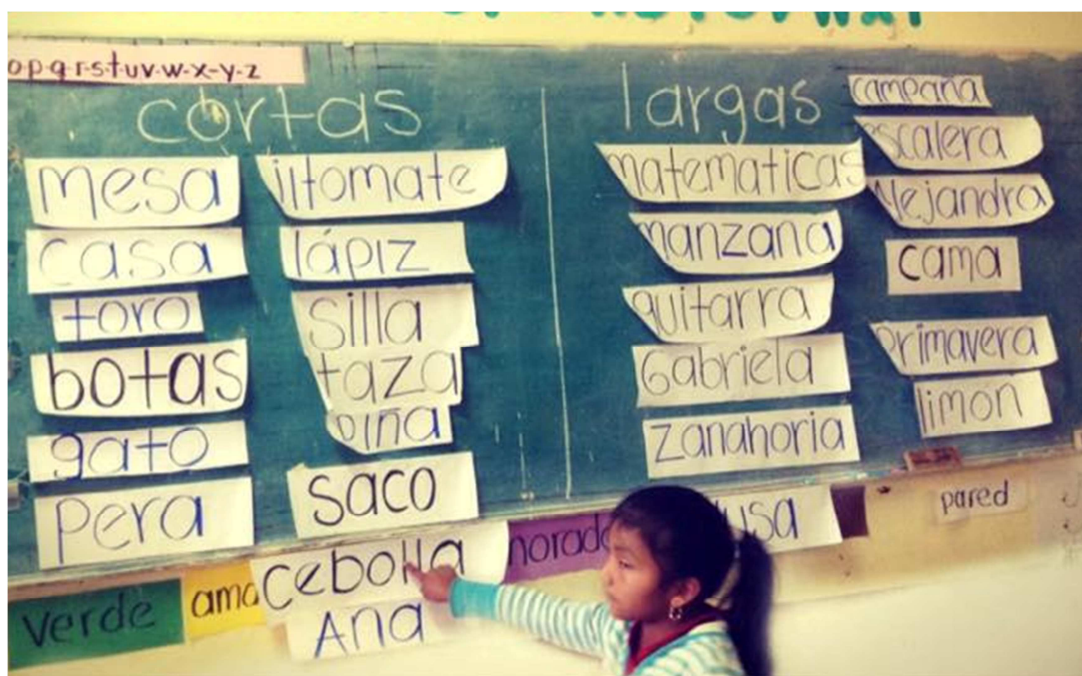 o-p-q-r-s-t-u-v-w-x-y-z
cortas
mesa
casa
toro
botas
gato
pera
jitomate
lápiz
silla
taza
piña
saco
cebolla
Ana
largas
matematicas
manzana
guitarra
Gabriela
zanahoria
campana
escalera
Alejandra
cama
primavera
limón
pared
verde
ama
morado
usa